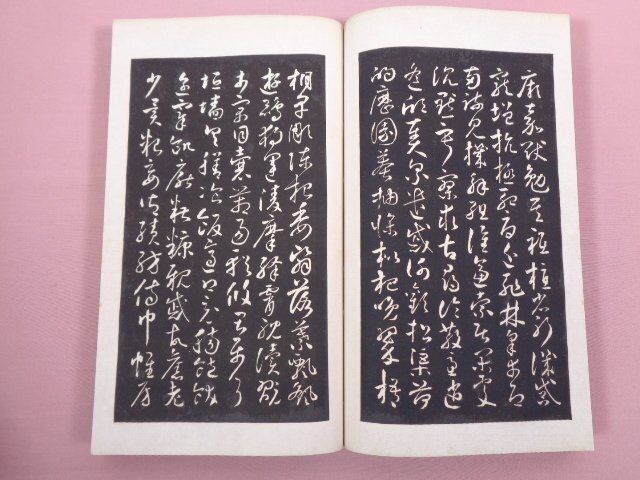 厥嘉猷勉其祗植省躬譏誡
寵增抗極殆辱近恥林皋幸即
兩疏見機解組誰逼索居閑處
沉默寂寥求古尋論散慮逍
遙欣奏累遣慼謝歡招渠荷
的歷園莽抽條枇杷晚翠梧
桐早彫陳根委翳落葉飄颻
遊鵾獨運凌摩絳霄耽讀翫
市寓目囊箱易輶攸畏屬耳
垣墻具膳飡飯適口充腸飽飫
烹宰飢厭糟糠親戚故舊老
少異糧妾御績紡侍巾帷房